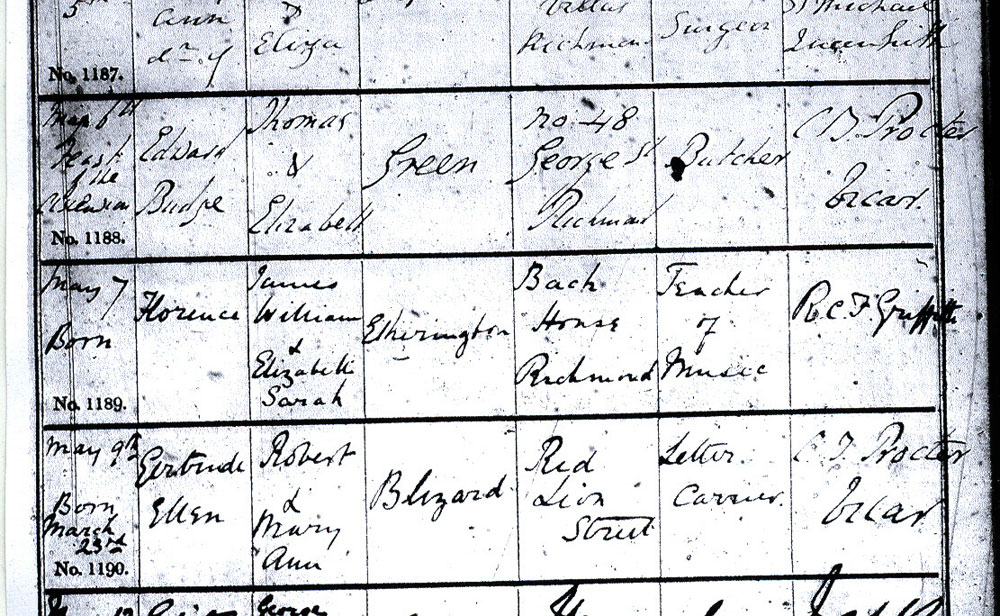 5th
Ann
&
Villas
Surgeon
St Michael
dr. of
Eliza
Richmond
Queenhith
No. 1187.
May 6th
Feast
of the
Ascension
Edward
Budge
Thomas
&
Elizabeth
Green
No. 48
George St
Richmond
Butcher
C T Procter
Vicar.
No. 1188.
May 7
Born
Florence
James
William
&
Elizabeth
Sarah
Etherington
Bach
House
Richmond
Teacher
of
Music
R C F Griffith
No. 1189.
May 9th
Born
March
23rd
Gertrude
Ellen
Robert
&
Mary
Ann
Blizard
Red
Lion
Street
Letter
Carrier.
C T Procter
Vicar
No. 1190.
George